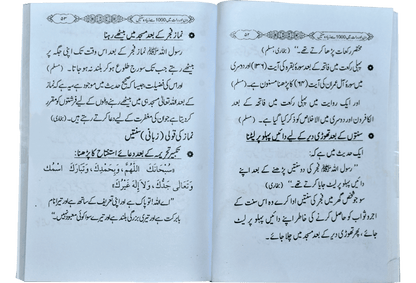 ۵۲
مختصر رکعات پڑھا کرتے تھے۔" (بخاری، مسلم)
پہلی رکعت میں فاتحہ کے بعد سورۃ بقرہ کی آیت (۱۳۶) اور دوسری
میں سورۃ آل عمران کی آیت (۶۴) کا پڑھنا مسنون ہے۔ (مسلم)
اور ایک روایت میں پہلی رکعت میں فاتحہ کے بعد
الکافرون اور دوسری میں الاخلاص کا ذکر کیا گیا ہے۔ (مسلم)
سنتوں کے بعد تھوڑی دیر کے لیے دائیں پہلو پر لیٹنا
ایک حدیث میں ہے کہ:
"رسول اللہ ﷺ فجر کی دو سنتیں پڑھنے کے بعد اپنے
دائیں پہلو پر لیٹ جایا کرتے تھے۔" (بخاری)
سو جو شخص گھر میں فجر کی سنتیں ادا کرے وہ اس سنت کے
اجر و ثواب کو حاصل کرنے کی خاطر اپنے دائیں پہلو پر لیٹ
جائے، پھر تھوڑی دیر کے بعد مسجد میں چلا جائے۔
۵۳
نماز فجر کے بعد مسجد میں بیٹھے رہنا
رسول اللہ ﷺ نماز فجر کے بعد اس وقت تک اپنی جگہ پر
بیٹھے رہتے جب تک سورج طلوع ہو کر بلند نہ ہو جاتا۔ (مسلم)
اور اس کی فضیلت جیسا کہ صحیح حدیث میں موجود ہے یہ ہے کہ نماز
کے بعد اللہ تعالیٰ مسجد ہی میں بیٹھے رہنے والوں کے لیے فرشتوں کو مقرر
کر دیتا ہے جو ان کی مغفرت کے لیے دعا کرتے رہتے ہیں۔ (بخاری)
نماز کی قولی (زبانی) سنتیں
تکبیر تحریمہ کے بعد دعائے استفتاح کا پڑھنا:
"سُبْحَانَكَ اللَّهُمَّ، وَبِحَمْدِكَ، وَتَبَارَكَ اسْمُكَ
وَتَعَالَى جَدُّكَ، وَلَا إِلٰهَ غَيْرُكَ"
"اے اللہ! تو پاک ہے اور اپنی تعریف کے ساتھ ہے اور تیرا نام
بابرکت ہے اور تیری بزرگی بلند ہے اور تیرے سوا کوئی معبود نہیں۔"